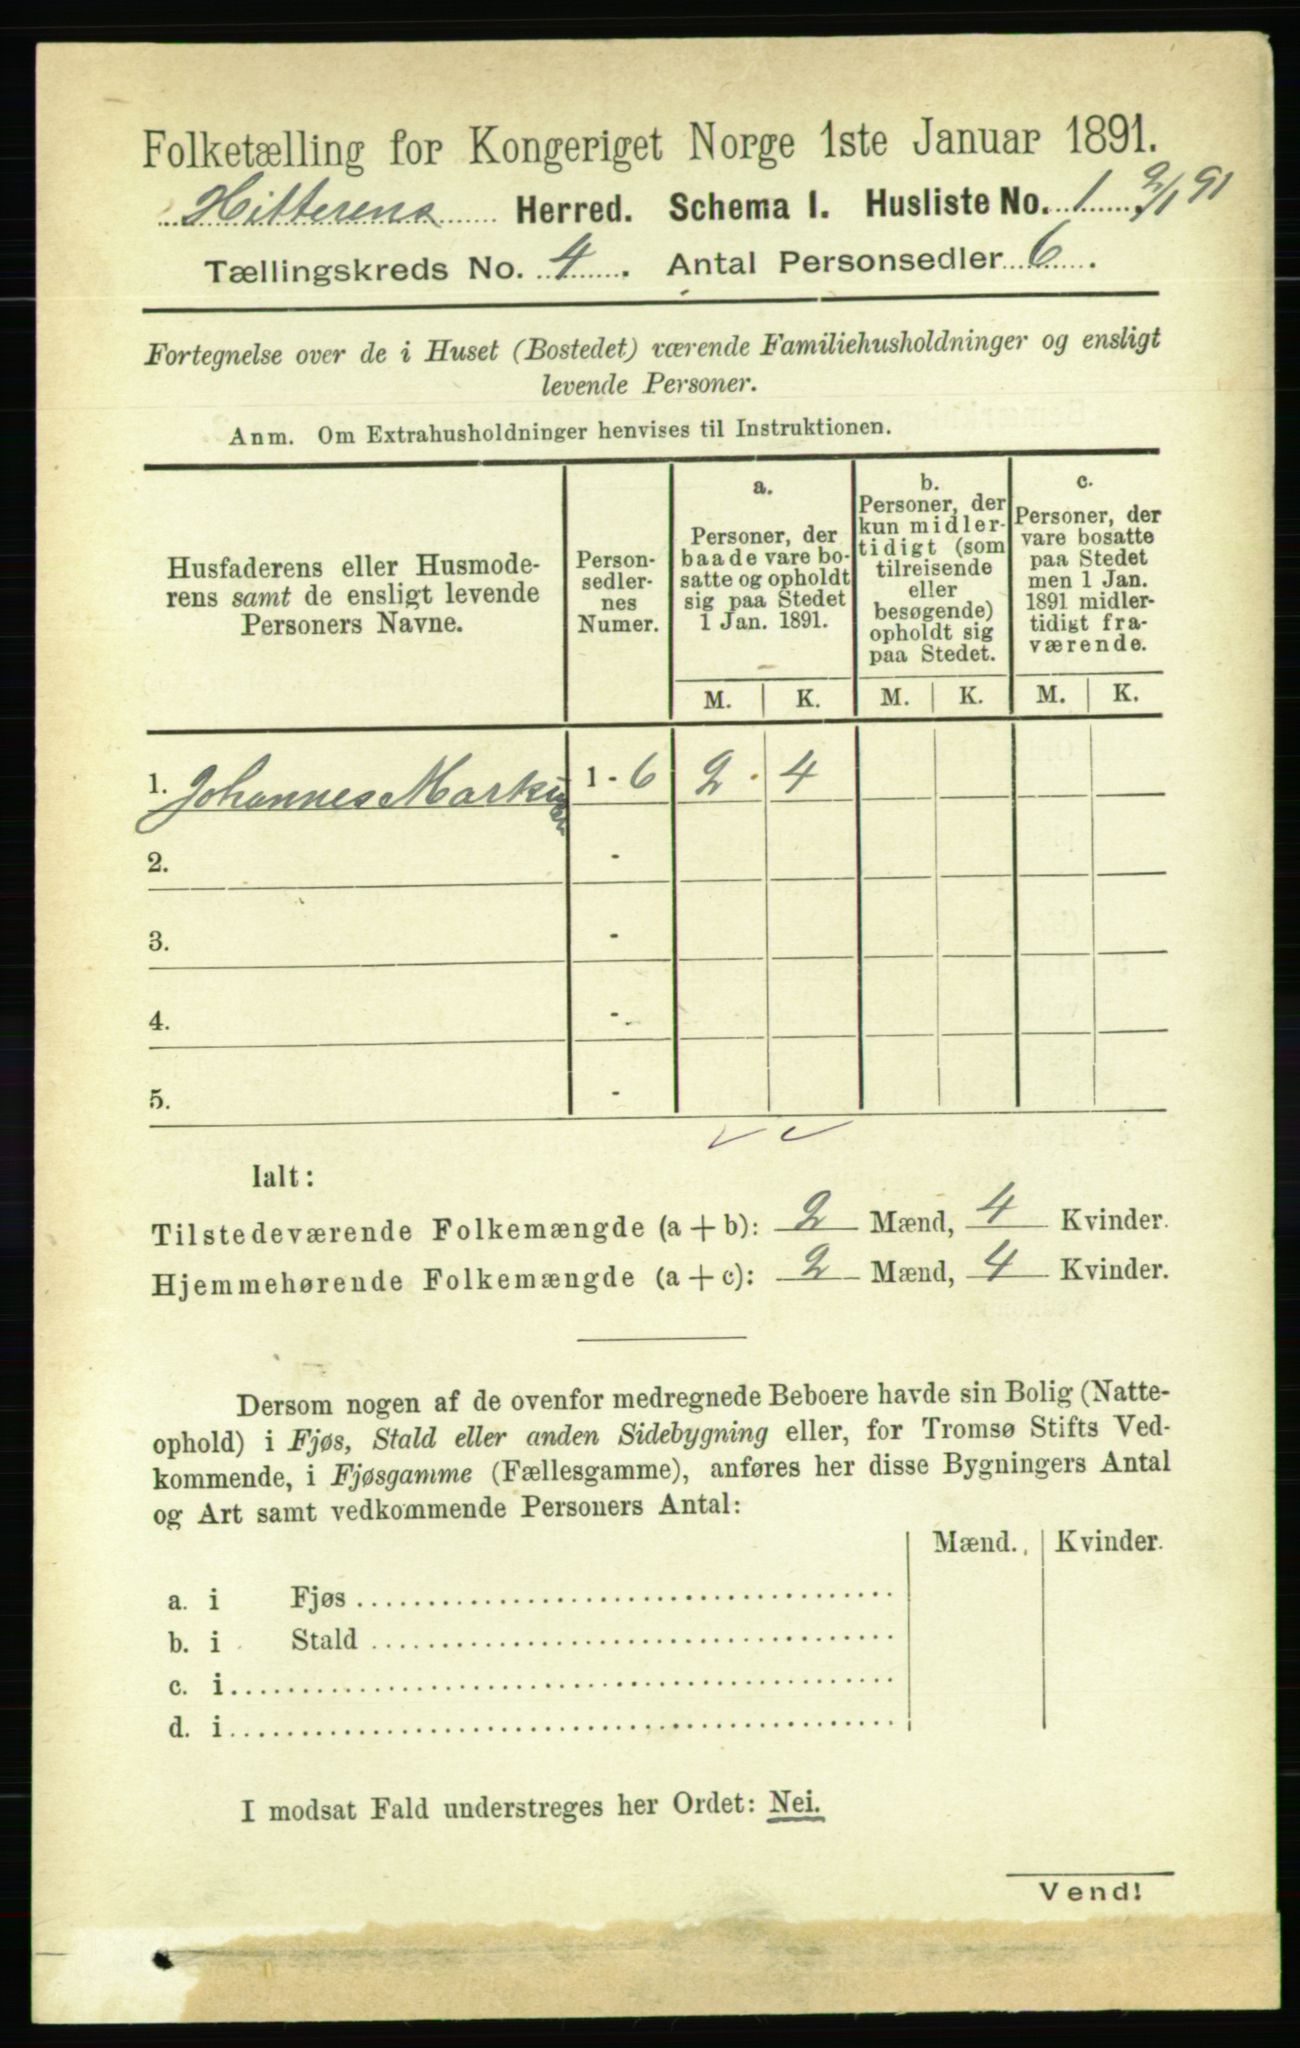 Folketælling for Kongeriget Norge 1ste Januar 1891.
Hitterens Herred. Schema I. Husliste No. 1 2/1 91
Tællingskreds No. 4. Antal Personsedler 6.
Fortegnelse over de i Huset (Bostedet) værende Familiehusholdninger og ensligt
levende Personer.
Anm. Om Extrahusholdninger henvises til Instruktionen.
Husfaderens eller Husmode-
rens samt de ensligt levende
Personers Navne.
Person-
sedler-
nes
Numer.
a.
Personer, der
baade vare bo-
satte og opholdt
sig paa Stedet
1 Jan. 1891.
b.
Personer, der
kun midler-
tidigt (som
tilreisende
eller
besøgende)
opholdt sig
paa Stedet.
c.
Personer, der
vare bosatte
paa Stedet
men 1 Jan.
1891 midler-
tidigt fra-
værende.
M. K. M. K. M. K.
1. Johannes 1 - 6 2 4
2. -
3. -
4. -
5. -
Ialt:
Tilstedeværende Folkemængde (a + b): 2 Mænd, 4 Kvinder.
Hjemmehørende Folkemængde (a + c): 2 Mænd, 4 Kvinder.
Dersom nogen af de ovenfor medregnede Beboere havde sin Bolig (Natte-
ophold) i Fjøs, Stald eller anden Sidebygning eller, for Tromsø Stifts Ved-
kommende, i Fjøsgamme (Fællesgamme), anføres her disse Bygningers Antal
og Art samt vedkommende Personers Antal:
Mænd. Kvinder.
a. i Fjøs
b. i Stald
c. i
d. i
I modsat Fald understreges her Ordet: Nei.
Vend!